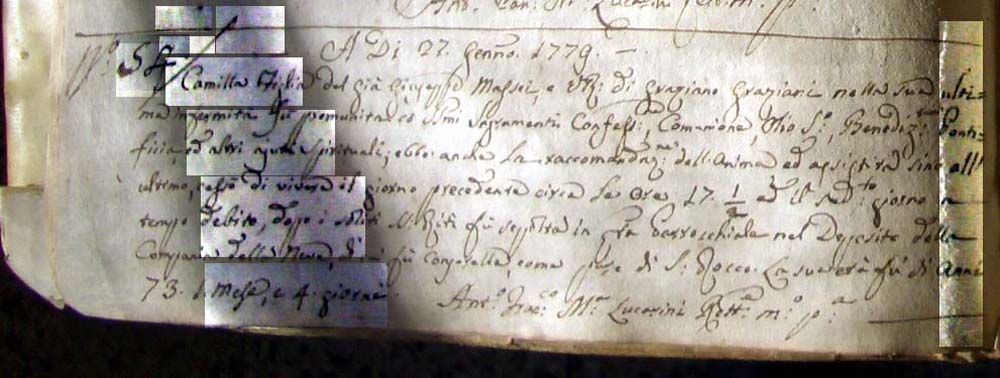 54 A Di 27. Genn.o 1779. -
Camilla Figlia del già Giuseppe Massei, e di Graziano Graziani nella sua ulti=
ma infermità fù premunita cò SSmi Sagramenti Confess:, Comunione, Olio S.o, Benediz: Ponti=
ficia, ed altri ajuti spirituali; ebbe anche la raccomandaz.ne dell'Anima ed assistita sino all'
ultimo, cessò di vivere il giorno precedente circa le Ore 17. 1/2 ed il sud.to giorno a
tempo debito, doppo i soliti SS. Riti fù sepolta in q̃ta Parrocchiale nel Deposito della
Compagnia della Neve, di cui fù Consorella, come pure di S: Rocco. La sua età fù di Anni
73. 1. Mese, e 4. giorni.
Ant.o M.a Lucarini Rett.e m.o p.a